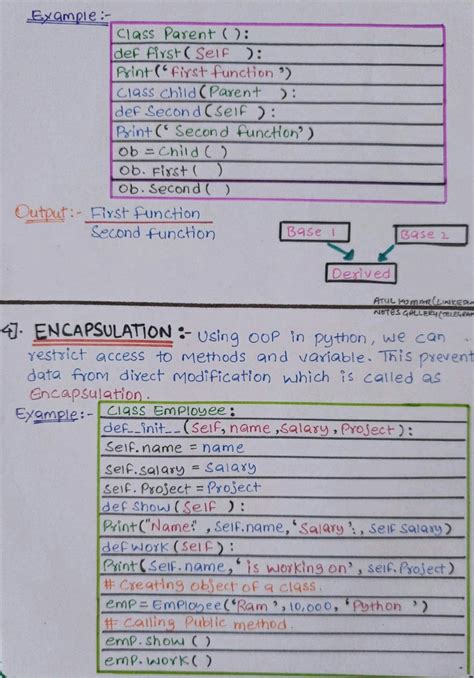 Example:-
Class Parent ( ):
def first( Self ):
Print(‘first function’)
Class child(Parent ):
def Second(Self ):
Print(‘ Second function’)
Ob = Child ( )
Ob. First ( )
Ob. Second ( )
Output:- First function
Second function
Base 1
Base 2
Derived
ATUL KUMAR(LINKEDIN
NOTES GALLERY(TELEGRAM
4). ENCAPSULATION :- Using OOP in python, we can
restrict access to methods and variable. This prevent
data from direct Modification which is called as
Encapsulation.
Example:-
Class Employee:
def_init_(Self,name,Salary,Project):
Self.name = name
Self.salary = Salary
Self.Project = Project
def Show(Self ):
Print("Name:",Self.name,‘Salary’:,Self Salary)
def work(Self):
Print(Self.name,‘is working on’,self.Project)
# Creating object of a class.
emp=Employee(‘Ram’,10,000,‘Python ’)
# Calling Public method.
emp.show ( )
emp.work( )